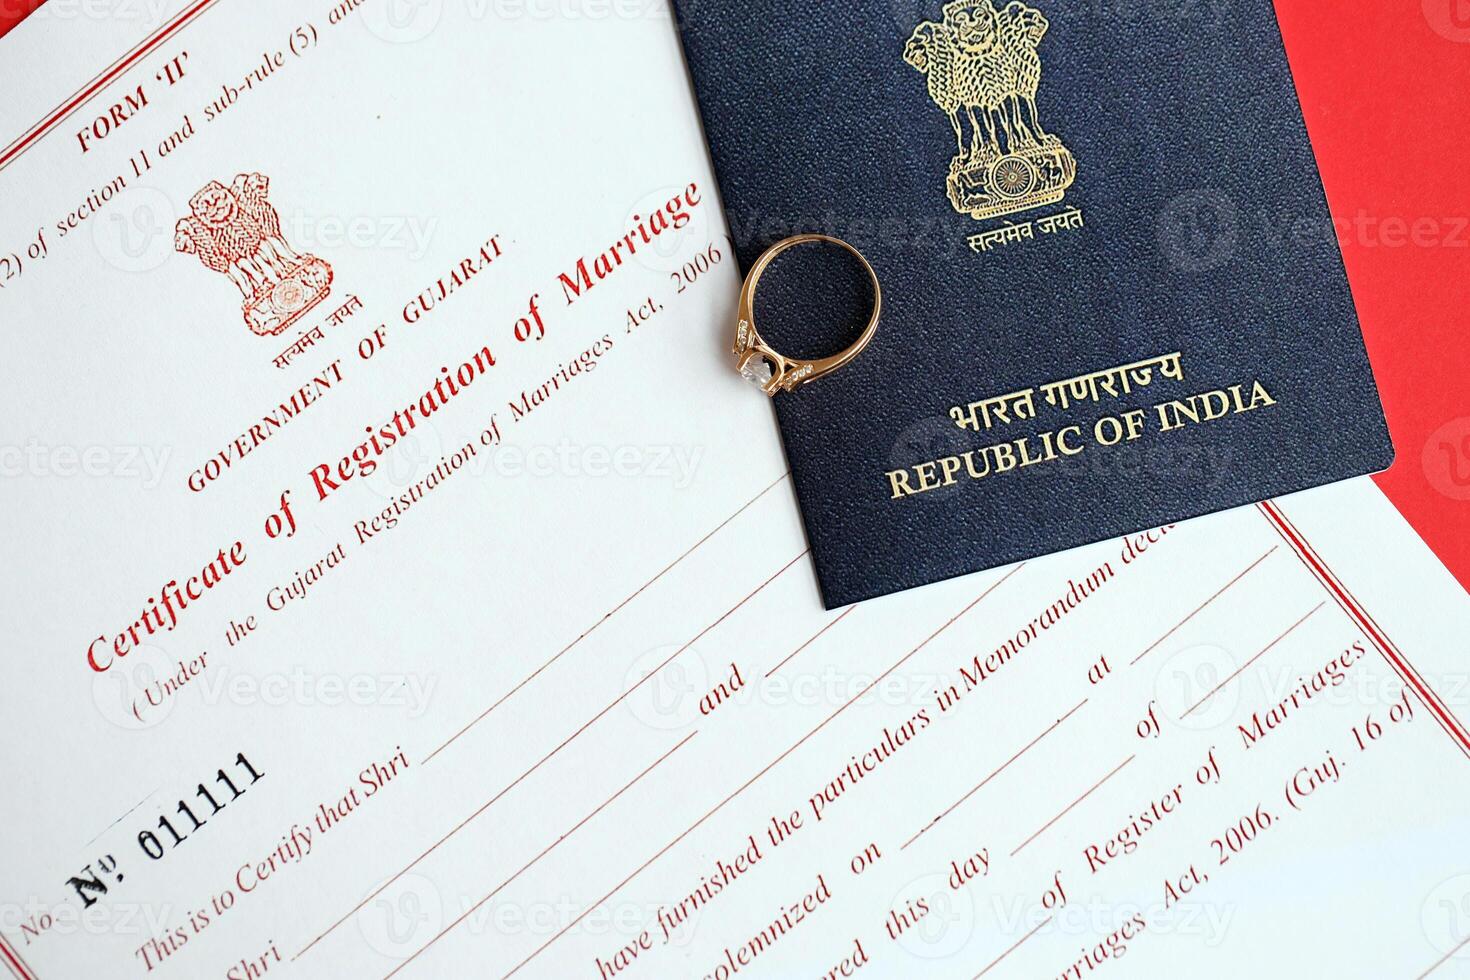 FORM 'II'
(2) of section 11 and sub-rule (5) and
सत्यमेव जयते
GOVERNMENT OF GUJARAT
Certificate of Registration of Marriage
( Under the Gujarat Registration of Marriages Act, 2006
No. Nº 011111
This is to Certify that Shri
Shri and
have furnished the particulars in Memorandum
solemnized on at
this day of
of Register of Marriages
Act, 2006. (Guj. 16 of
सत्यमेव जयते
भारत गणराज्य
REPUBLIC OF INDIA
Vecteezy